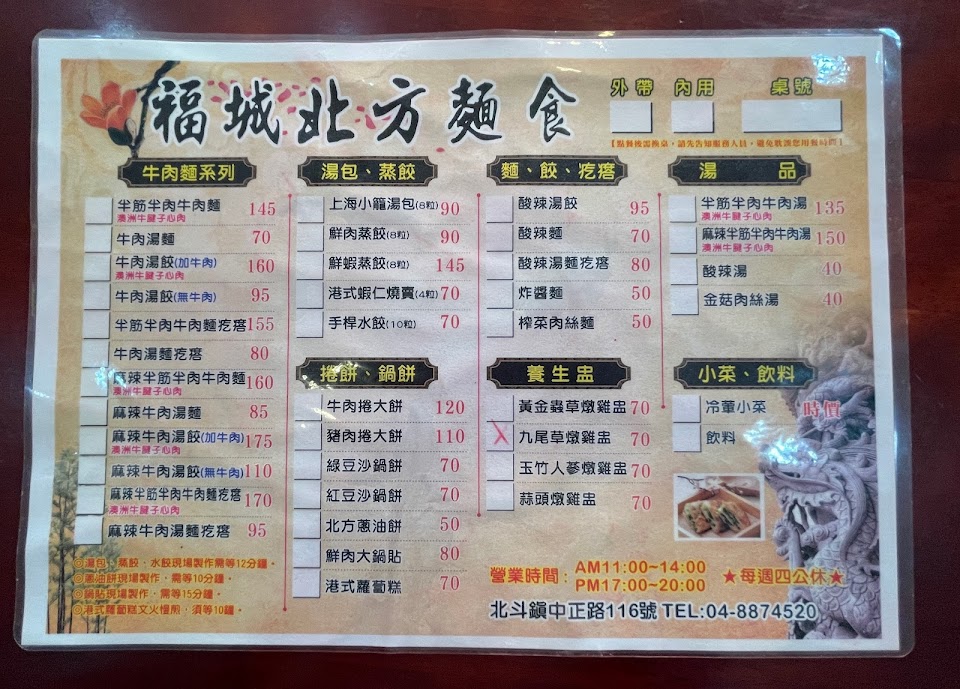 福城北方麵食
外帶 內用 桌號
【點餐後需換桌,請先告知服務人員,避免耽誤您用餐時間】
牛肉麵系列
半筋半肉牛肉麵 145
澳洲牛腱子心肉
牛肉湯麵 70
牛肉湯餃(加牛肉) 160
澳洲牛腱子心肉
牛肉湯餃(無牛肉) 95
半筋半肉牛肉麵疙瘩 155
牛肉湯麵疙瘩 80
麻辣半筋半肉牛肉麵 160
澳洲牛腱子心肉
麻辣牛肉湯麵 85
麻辣牛肉湯餃(加牛肉) 175
澳洲牛腱子心肉
麻辣牛肉湯餃(無牛肉) 110
麻辣半筋半肉牛肉麵疙瘩 170
澳洲牛腱子心肉
麻辣牛肉湯麵疙瘩 95
◎湯包、蒸餃、水餃現場製作需等12分鐘。
◎蔥油餅現場製作,需等10分鐘。
◎鍋貼現場製作,需等15分鐘。
◎港式蘿蔔糕文火慢煎,須等10鐘。
湯包、蒸餃
上海小籠湯包(8粒) 90
鮮肉蒸餃(8粒) 90
鮮蝦蒸餃(8粒) 145
港式蝦仁燒賣(4粒) 70
手桿水餃(10粒) 70
捲餅、鍋餅
牛肉捲大餅 120
豬肉捲大餅 110
綠豆沙鍋餅 70
紅豆沙鍋餅 70
北方蔥油餅 50
鮮肉大鍋貼 80
港式蘿蔔糕 70
麵、餃、疙瘩
酸辣湯餃 95
酸辣麵 70
酸辣湯麵疙瘩 80
炸醬麵 50
榨菜肉絲麵 50
養生盅
黃金蟲草燉雞盅 70
九尾草燉雞盅 70
玉竹人蔘燉雞盅 70
蒜頭燉雞盅 70
湯 品
半筋半肉牛肉湯 135
澳洲牛腱子心肉
麻辣半筋半肉牛肉湯 150
澳洲牛腱子心肉
酸辣湯 40
金菇肉絲湯 40
小菜、飲料
冷葷小菜 時價
飲料
營業時間: AM11:00~14:00
PM17:00~20:00
★每週四公休★
北斗鎮中正路116號 TEL:04-8874520